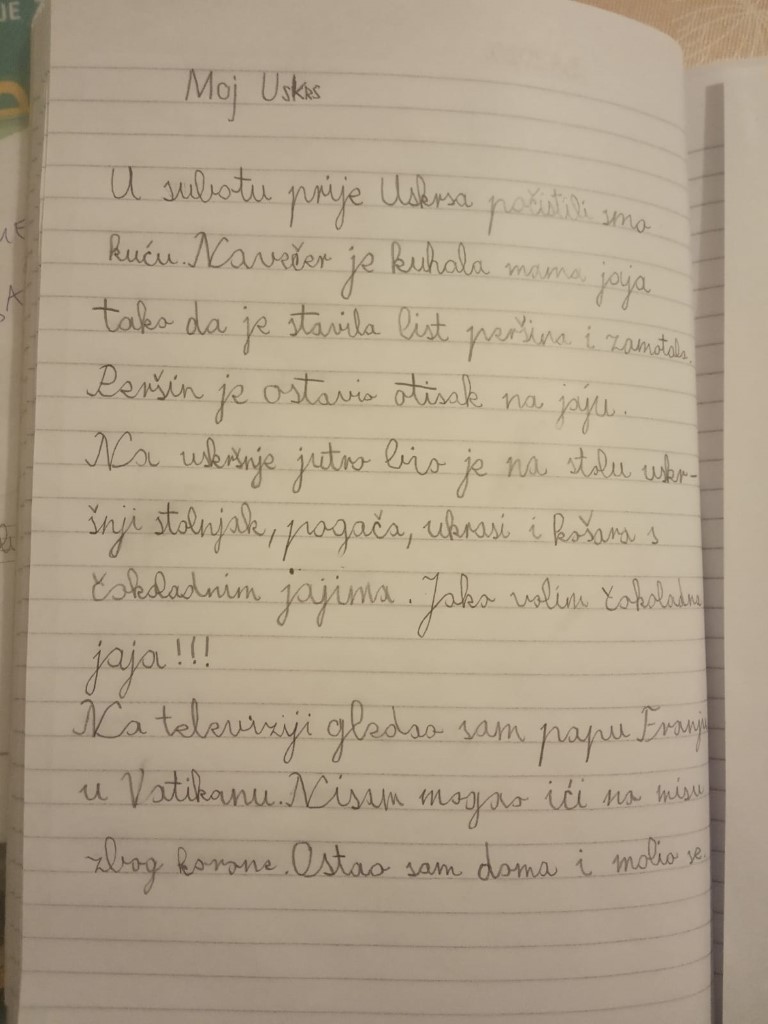 Moj Uskrs
U subotu prije Uskrsa počistili smo
kuću. Navečer je kuhala mama jaja
tako da je stavila list peršina i zamotala.
Peršin je ostavio otisak na jaju.
Na uskršnje jutro bio je na stolu uskr-
šnji stolnjak, pogača, ukrasi i košara s
čokoladnim jajima. Jako volim čokoladna
jaja!!!
Na televiziji gledao sam papu Franju
u Vatikanu. Nisam mogao ići na misu
zbog korone. Ostao sam doma i molio se.